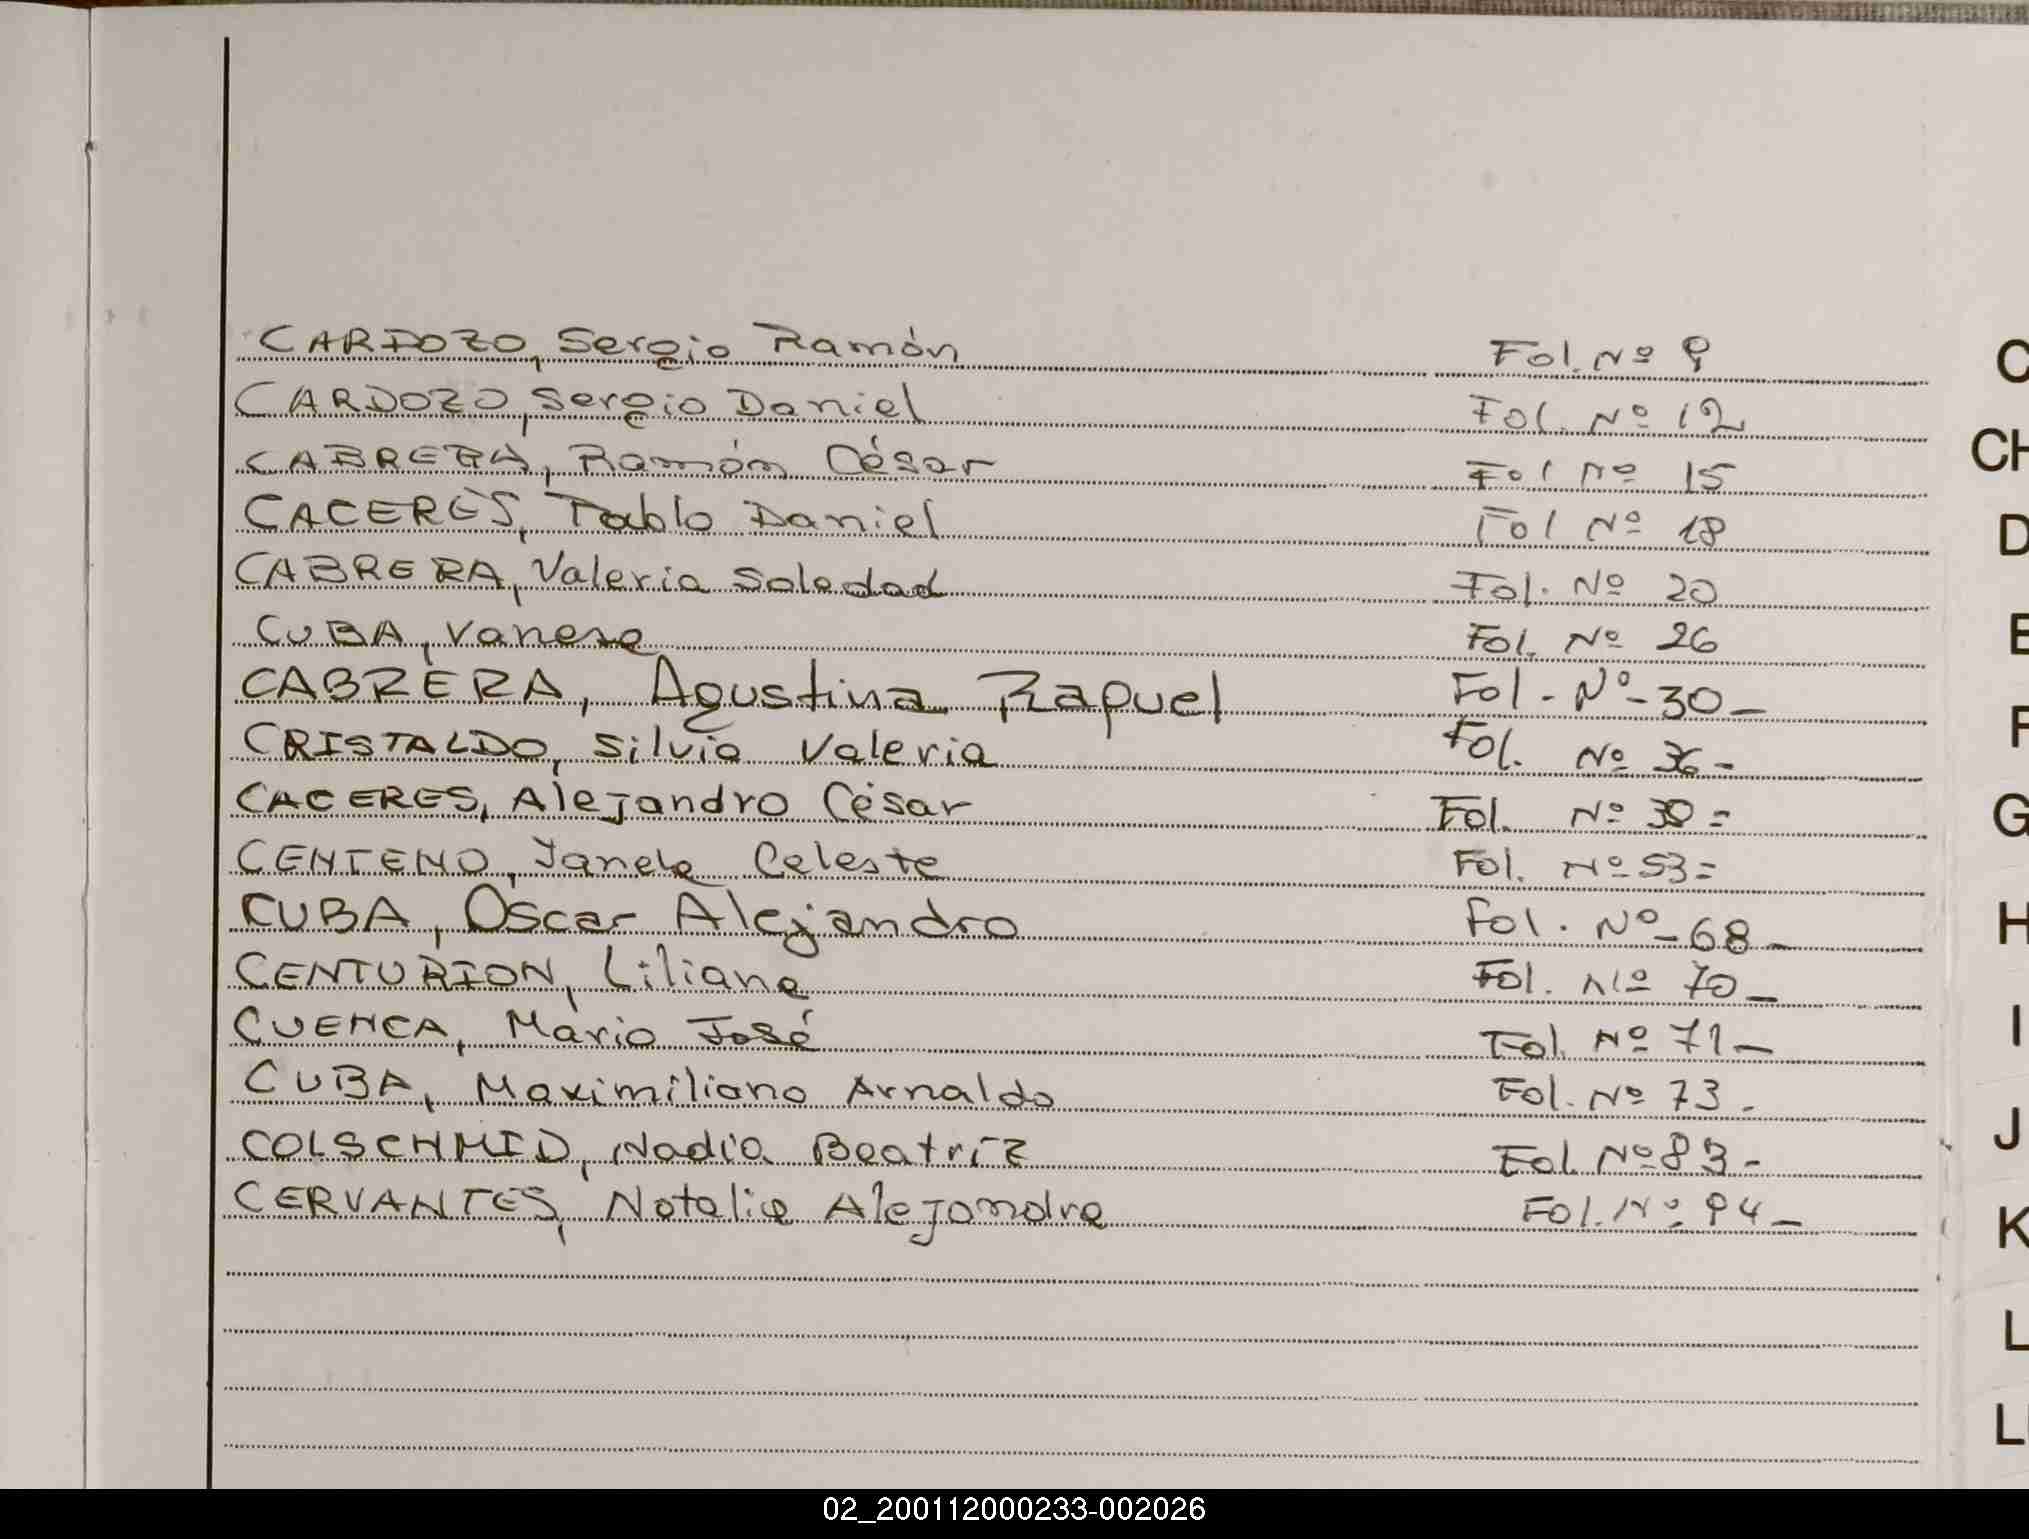 CARDOZO, Sergio Ramón Fol. Nº 9
CARDOZO, Sergio Daniel Fol. Nº 12
CABRERA, Ramón César Fol Nº 15
CACERES, Pablo Daniel Fol Nº 18
CABRERA, Valeria Soledad Fol. Nº 20
CUBA, Vanesa Fol. Nº 26
CABRERA, Agustina Raquel Fol - Nº - 30 -
CRISTALDO, Silvia Valeria Fol. Nº 36 -
CACERES, Alejandro César Fol. Nº 39 =
CENTENO, Yanela Celeste Fol. Nº 53 =
CUBA, Oscar Alejandro Fol. Nº - 68 -
CENTURION, Liliana Fol. Nº 70 -
CUENCA, Mario José Fol. Nº 71 -
CUBA, Maximiliano Arnaldo Fol. Nº 73 -
COLSCHMID, Nadia Beatríz Fol. Nº 83 -
CERVANTES, Natalia Alejandra Fol. Nº 94 -
C
CH
D
E
F
G
H
I
J
K
L
LL
02_200112000233-002026